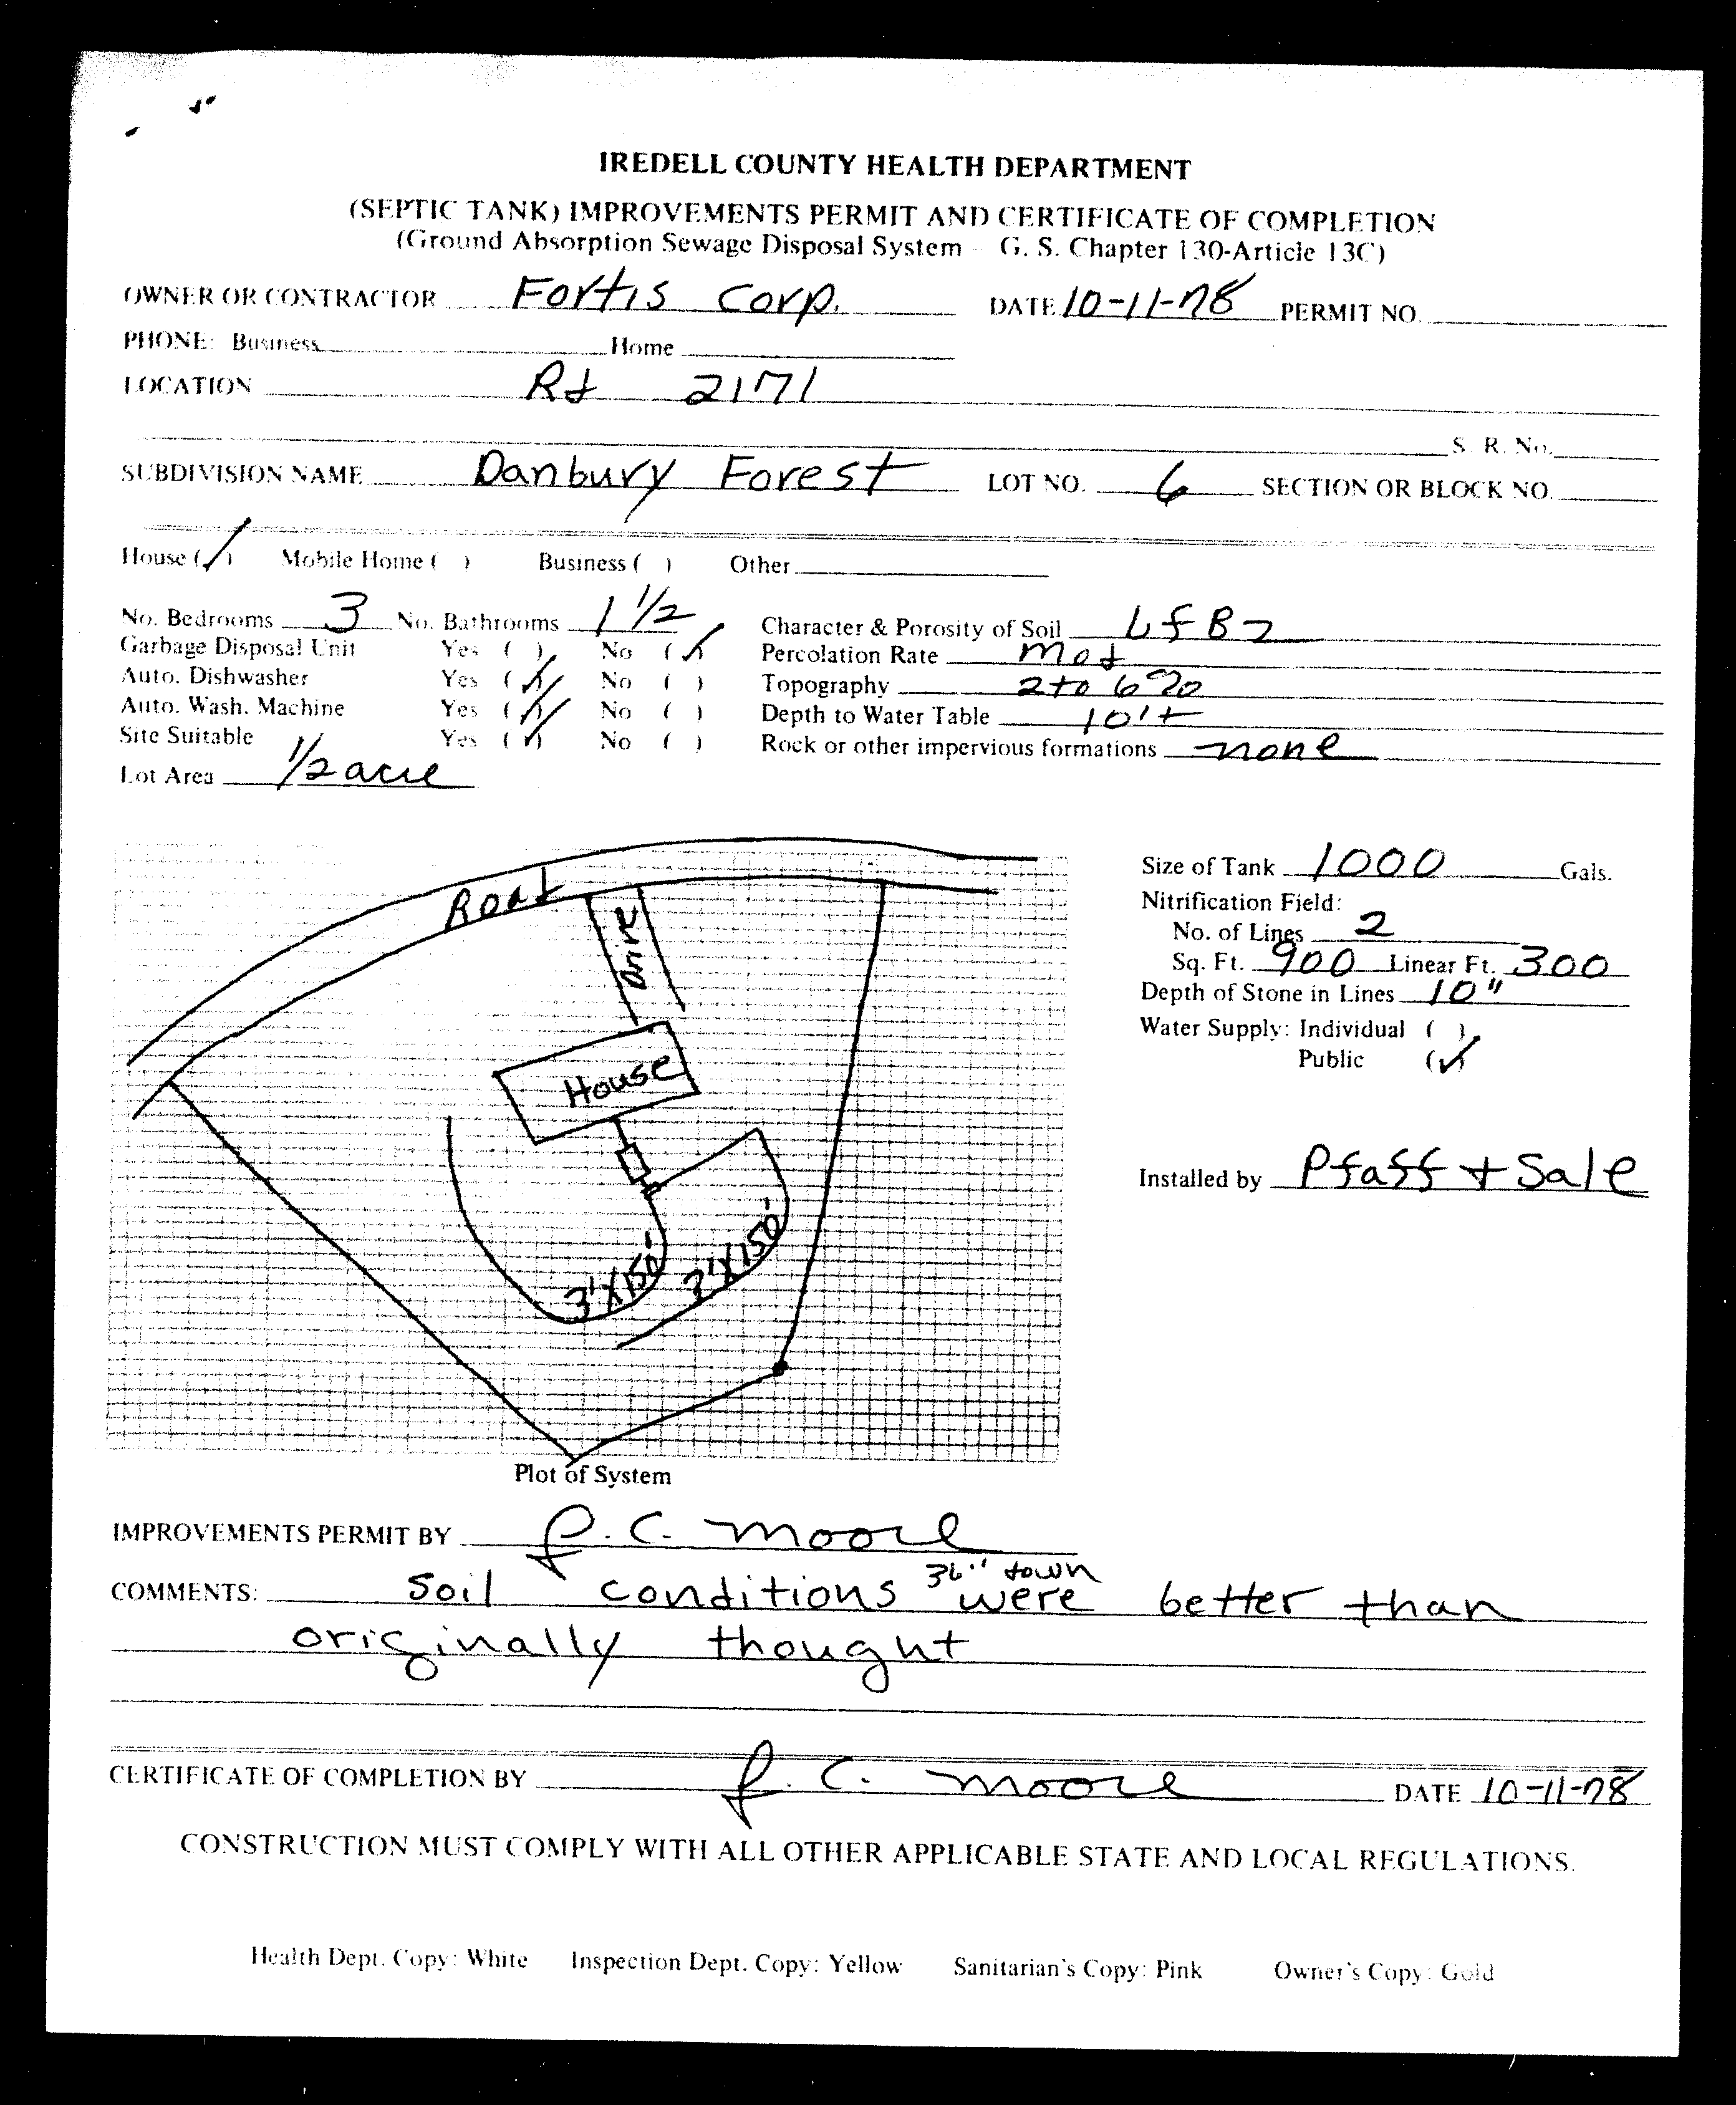 IREDELL COUNTY HEALTH DEPARTMENT
(SEPTIC TANK) IMPROVEMENTS PERMIT AND CERTIFICATE OF COMPLETION
(Ground Absorption Sewage Disposal System - G. S. Chapter 130-Article 13C)
OWNER OR CONTRACTOR Fortis Corp. DATE 10-11-78 PERMIT NO.
PHONE: Business Home
LOCATION Rd 2171
S. R. No.
SUBDIVISION NAME Danbury Forest LOT NO. 6 SECTION OR BLOCK NO.
House (✓) Mobile Home ( ) Business ( ) Other
No. Bedrooms 3 No. Bathrooms 1 1/2
Garbage Disposal Unit Yes ( ) No (✓)
Auto. Dishwasher Yes (✓) No ( )
Auto. Wash. Machine Yes (✓) No ( )
Site Suitable Yes (✓) No ( )
Lot Area 1/2 acre
Character & Porosity of Soil
Percolation Rate mod
Topography 2 to 6%
Depth to Water Table 10'+
Rock or other impervious formations none
Road
Drive
House
3'X150'
3'X150'
Plot of System
Size of Tank 1000 Gals.
Nitrification Field:
No. of Lines 2
Sq. Ft. 900 Linear Ft. 300
Depth of Stone in Lines 10"
Water Supply: Individual ( )
Public (✓)
Installed by Pfaff + Sale
IMPROVEMENTS PERMIT BY C. Moore
36" down
COMMENTS: Soil conditions were better than
originally thought
CERTIFICATE OF COMPLETION BY C. Moore DATE 10-11-78
CONSTRUCTION MUST COMPLY WITH ALL OTHER APPLICABLE STATE AND LOCAL REGULATIONS.
Health Dept. Copy: White Inspection Dept. Copy: Yellow Sanitarian's Copy: Pink Owner's Copy: Gold